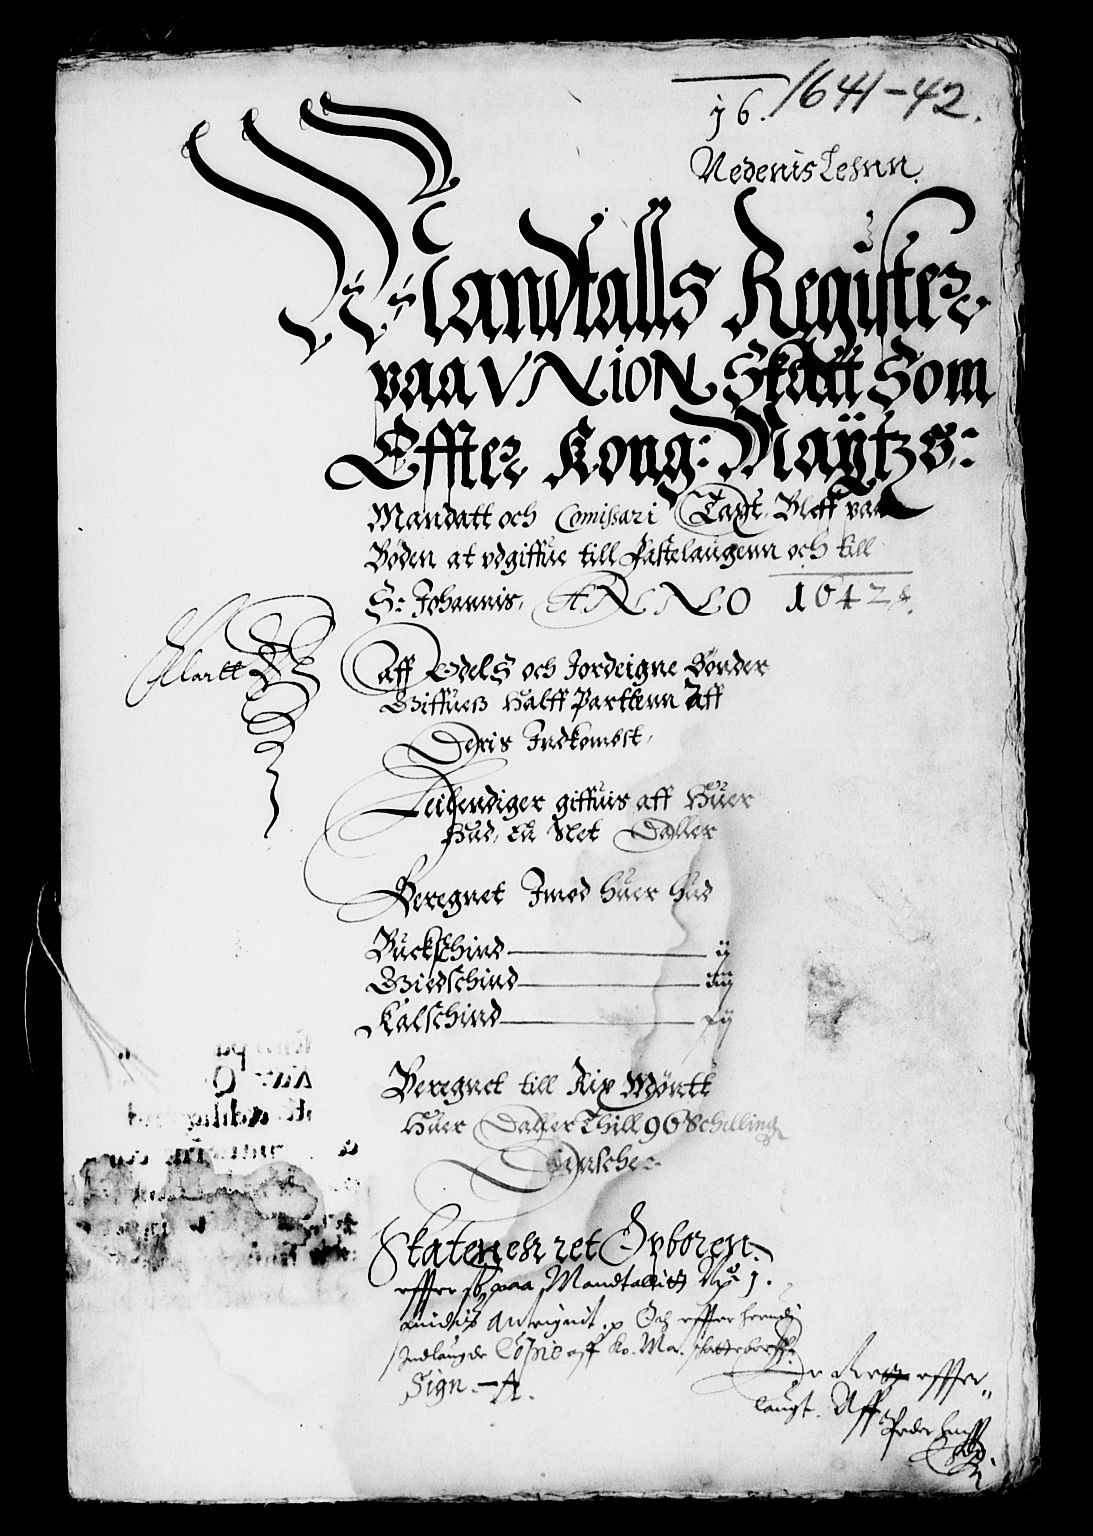 1641-42.
16.
Nedenis Lehnn.
Mandtalls Register
paa VNION Skatt Som
Effter Kong: Maÿtzs:
Mandatt och Comissari Taxt, Bleff paa
Bøden at vdgiffue till Fastelaugenn och till
S: Johannis, ANNO 1642.
Klartt
Aff Odels och Jordeigne Bønder
Giffues Halff Partenn Aff
Deris Indkomst,
Leilendiger giffuis aff Huer
Hud, En Slet Daller
Beregnet Imod Huer Hud
Buckschind ij
Giedschind iiij
Kalschind
Beregnet till Rix Møntt
Huer Daller Thill 96 Schilling
Dansche
Skatten er ret Opboren
effter paa Mandtallitt No 1.
Och effter
Indlaugde Copie aff Ko. Ma. skatte
Sign. A.
effter
laugt. Aff
Peder